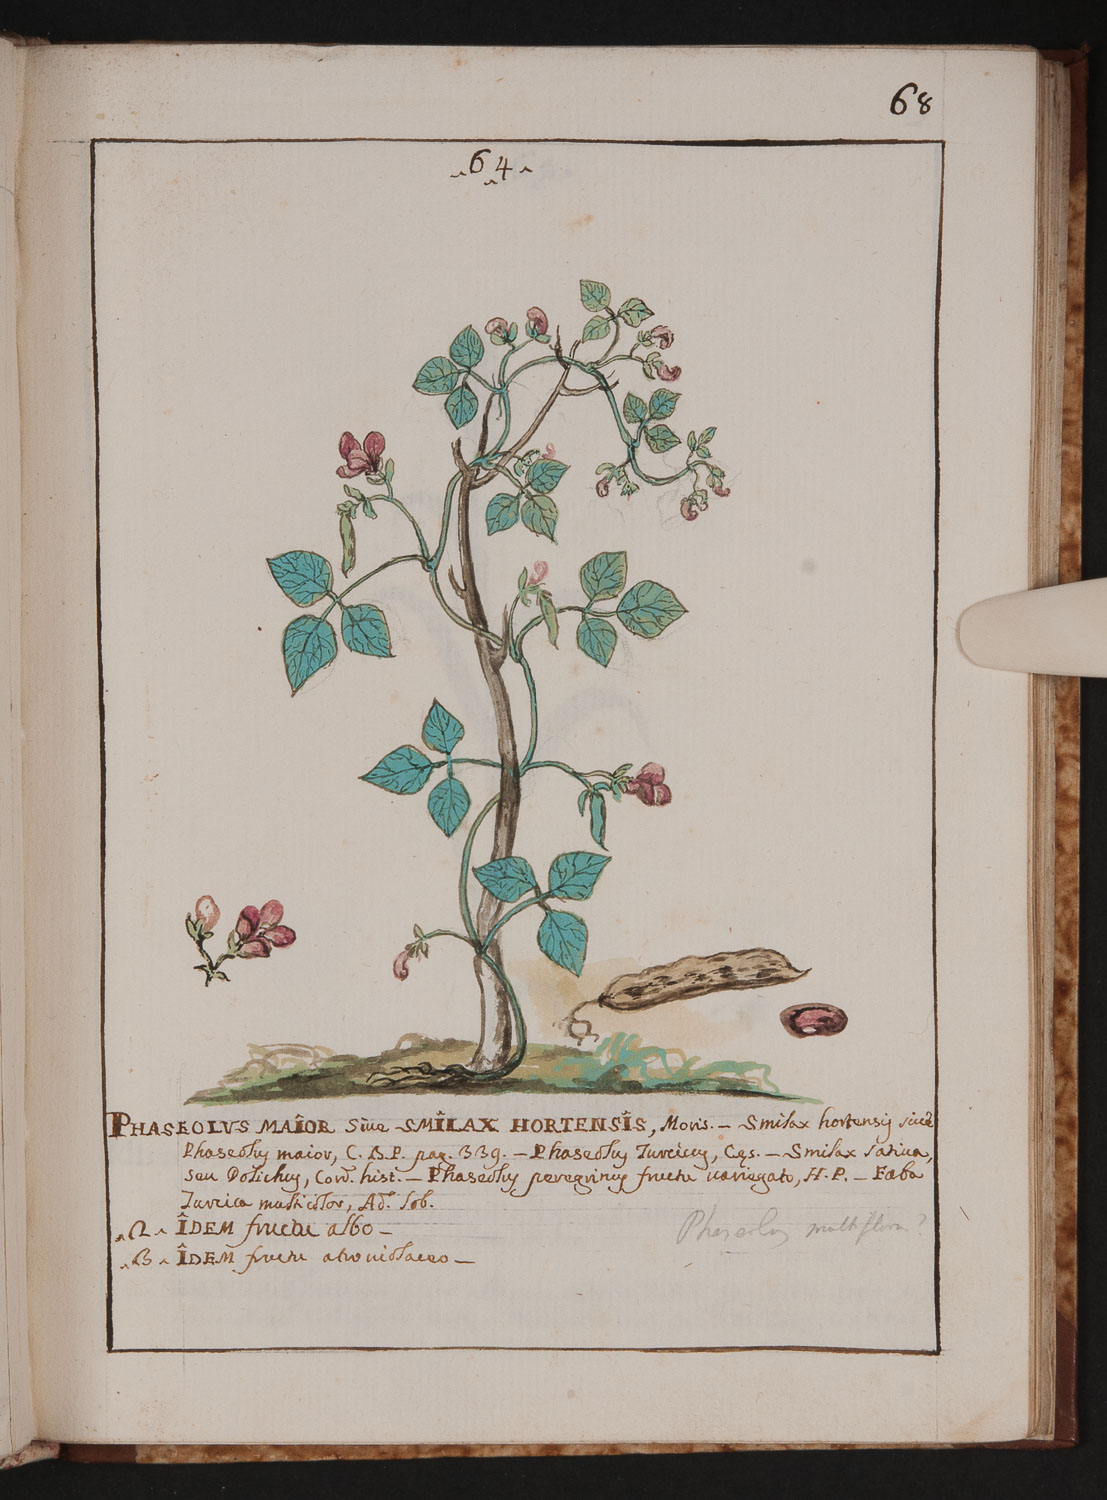 68
64
PHASEOLVS MAÎOR Siue SMÎLAX HORTENSÎS, Moris. — Smilax hortensis siue
Phaseolus maior, C. B. P. pag. 339. — Phaseolus Turcicus, Cæs. — Smilax Sativa,
seu Dolichus, Cord. hist. — Phaseolus peregrinus fructu variegato, H. P. — Faba
Turcica multicolor, Ad. Lob.
2 ÎDEM fructu albo —
3 ÎDEM fructu atro violaceo —
Phaseolus multiflora?